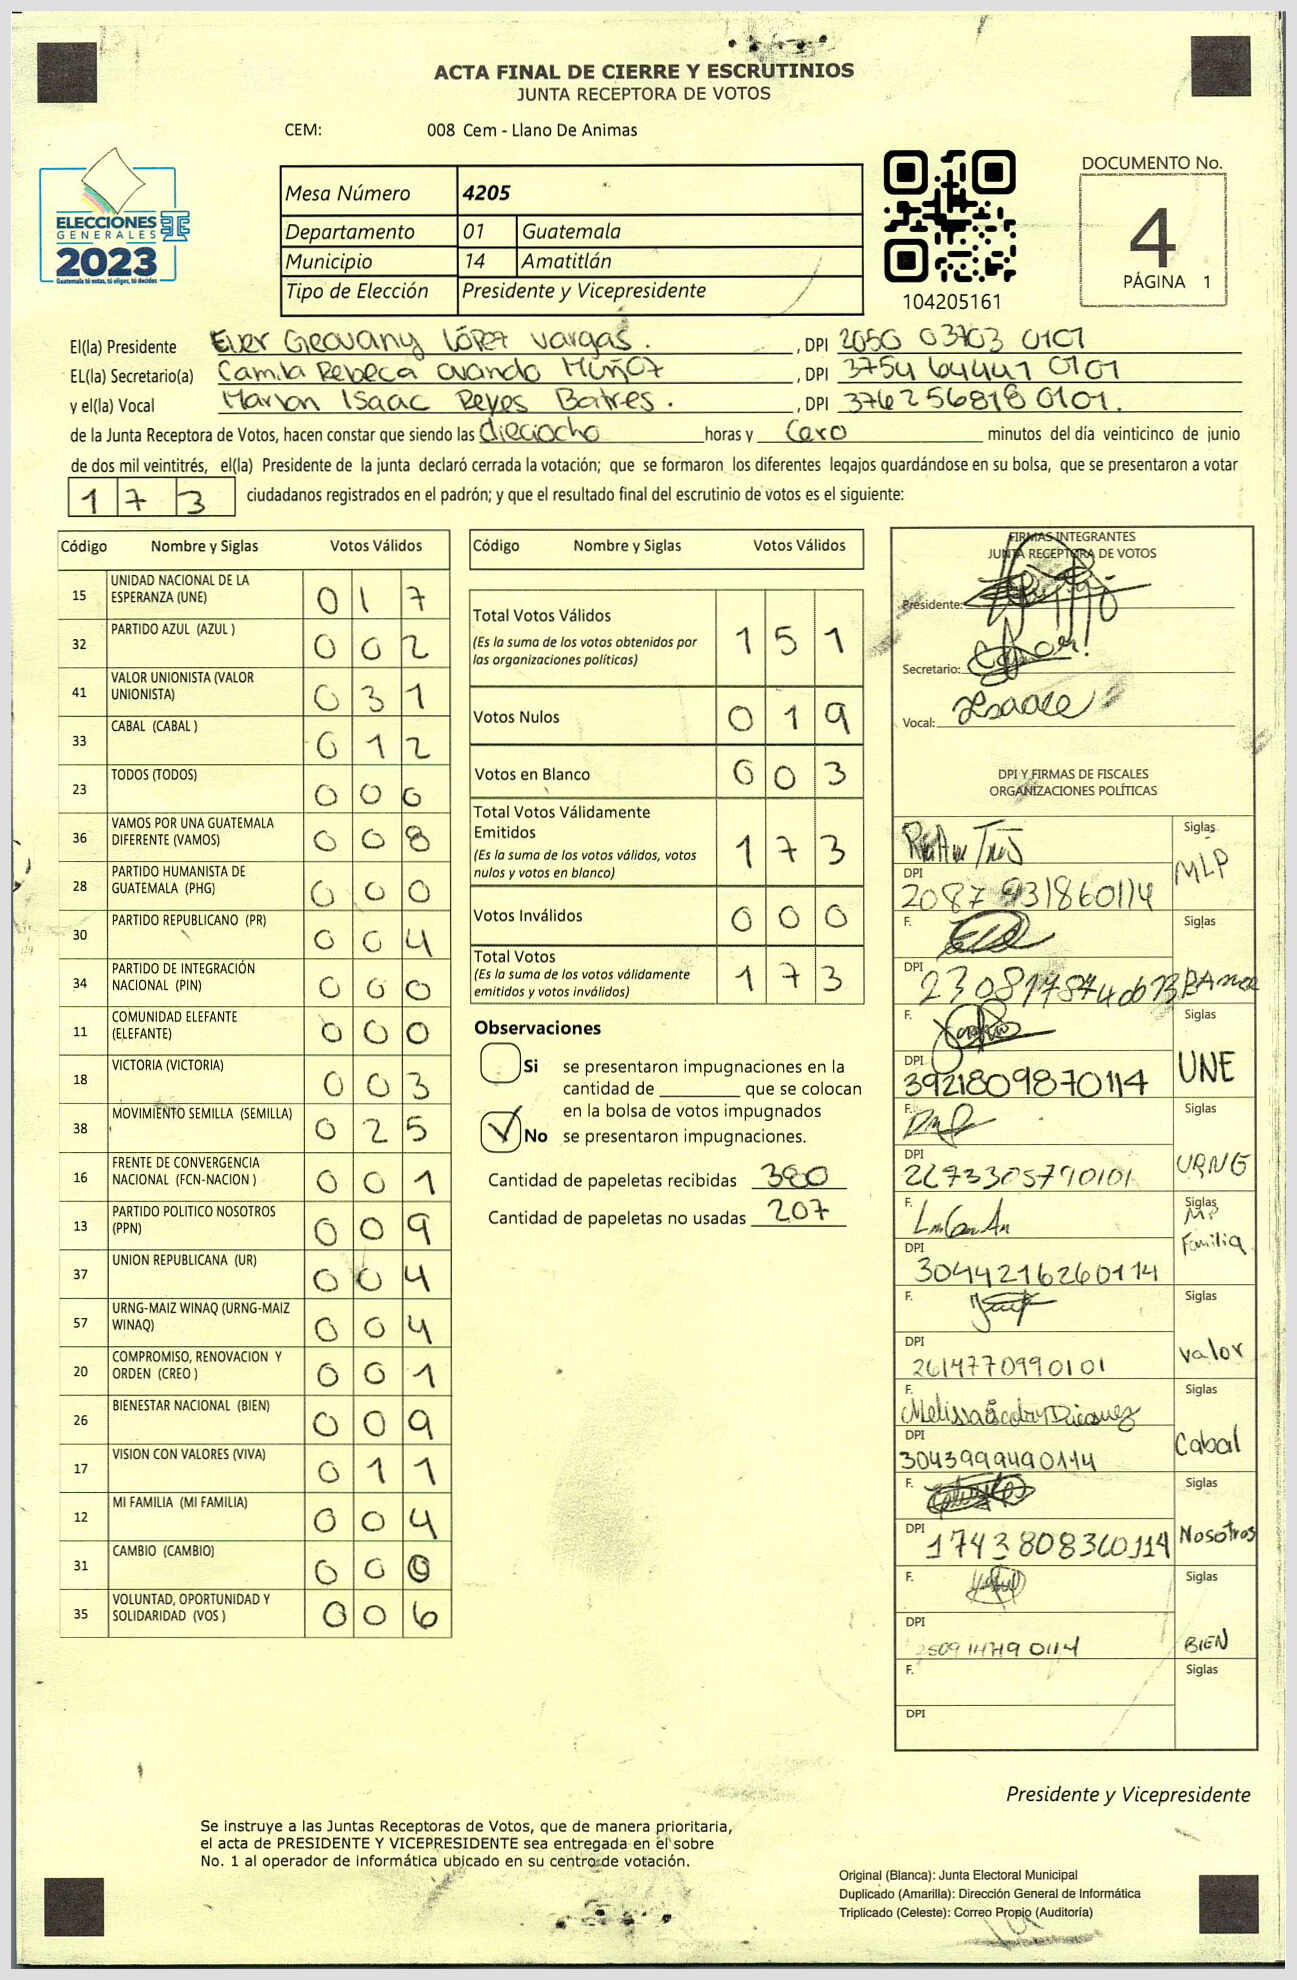 ACTA FINAL DE CIERRE Y ESCRUTINIOS
JUNTA RECEPTORA DE VOTOS
CEM: 008 Cem - Llano De Animas
ELECCIONES
GENERALES
2023
Guatemala tú votas, tú eliges, tú decides
Mesa Número 4205
Departamento 01 Guatemala
Municipio 14 Amatitlán
Tipo de Elección Presidente y Vicepresidente
104205161
DOCUMENTO No.
4
PÁGINA 1
El(la) Presidente Ever Geovany López Vargas. , DPI 2050 03703 0101
EL(la) Secretario(a) Camila Rebeca Ovando Muñoz , DPI 3754 64441 0101
y el(la) Vocal Marlon Isaac Reyes Batres. , DPI 3762 56818 0101.
de la Junta Receptora de Votos, hacen constar que siendo las dieciocho horas y cero minutos del día veinticinco de junio
de dos mil veintitrés, el(la) Presidente de la junta declaró cerrada la votación; que se formaron los diferentes legajos guardándose en su bolsa, que se presentaron a votar
173 ciudadanos registrados en el padrón; y que el resultado final del escrutinio de votos es el siguiente:
Código Nombre y Siglas Votos Válidos
15 UNIDAD NACIONAL DE LA ESPERANZA (UNE) 017
32 PARTIDO AZUL (AZUL ) 002
41 VALOR UNIONISTA (VALOR UNIONISTA) 031
33 CABAL (CABAL ) 012
23 TODOS (TODOS) 006
36 VAMOS POR UNA GUATEMALA DIFERENTE (VAMOS) 008
28 PARTIDO HUMANISTA DE GUATEMALA (PHG) 000
30 PARTIDO REPUBLICANO (PR) 004
34 PARTIDO DE INTEGRACIÓN NACIONAL (PIN) 000
11 COMUNIDAD ELEFANTE (ELEFANTE) 000
18 VICTORIA (VICTORIA) 003
38 MOVIMIENTO SEMILLA (SEMILLA) 025
16 FRENTE DE CONVERGENCIA NACIONAL (FCN-NACION ) 001
13 PARTIDO POLITICO NOSOTROS (PPN) 009
37 UNION REPUBLICANA (UR) 004
57 URNG-MAIZ WINAQ (URNG-MAIZ WINAQ) 004
20 COMPROMISO, RENOVACION Y ORDEN (CREO ) 001
26 BIENESTAR NACIONAL (BIEN) 009
17 VISION CON VALORES (VIVA) 011
12 MI FAMILIA (MI FAMILIA) 004
31 CAMBIO (CAMBIO) 000
35 VOLUNTAD, OPORTUNIDAD Y SOLIDARIDAD (VOS ) 006
Código Nombre y Siglas Votos Válidos
Total Votos Válidos 151
(Es la suma de los votos obtenidos por
las organizaciones políticas)
Votos Nulos 019
Votos en Blanco 003
Total Votos Válidamente
Emitidos 173
(Es la suma de los votos válidos, votos
nulos y votos en blanco)
Votos Inválidos 000
Total Votos 173
(Es la suma de los votos válidamente
emitidos y votos inválidos)
Observaciones
Si se presentaron impugnaciones en la
cantidad de ________ que se colocan
en la bolsa de votos impugnados
No se presentaron impugnaciones.
Cantidad de papeletas recibidas 380
Cantidad de papeletas no usadas 207
FIRMAS INTEGRANTES
JUNTA RECEPTORA DE VOTOS
Presidente:
Secretario:
Vocal: Isaac
DPI Y FIRMAS DE FISCALES
ORGANIZACIONES POLÍTICAS
Siglas MLP
DPI
F. Siglas
DPI
F. Siglas UNE
DPI 3921809870114
F. Siglas URNG
DPI 2673305790101
F. Siglas MP Familia
DPI 3044216260114
F. Siglas Valor
DPI 2614770990101
F. Melissa Siglas Cabal
DPI 3043999490114
F. Siglas Nosotros
DPI 1743808360114
F. Siglas BIEN
DPI
F. Siglas
DPI
Presidente y Vicepresidente
Se instruye a las Juntas Receptoras de Votos, que de manera prioritaria,
el acta de PRESIDENTE Y VICEPRESIDENTE sea entregada en el sobre
No. 1 al operador de informática ubicado en su centro de votación.
Original (Blanca): Junta Electoral Municipal
Duplicado (Amarilla): Dirección General de Informática
Triplicado (Celeste): Correo Propio (Auditoría)